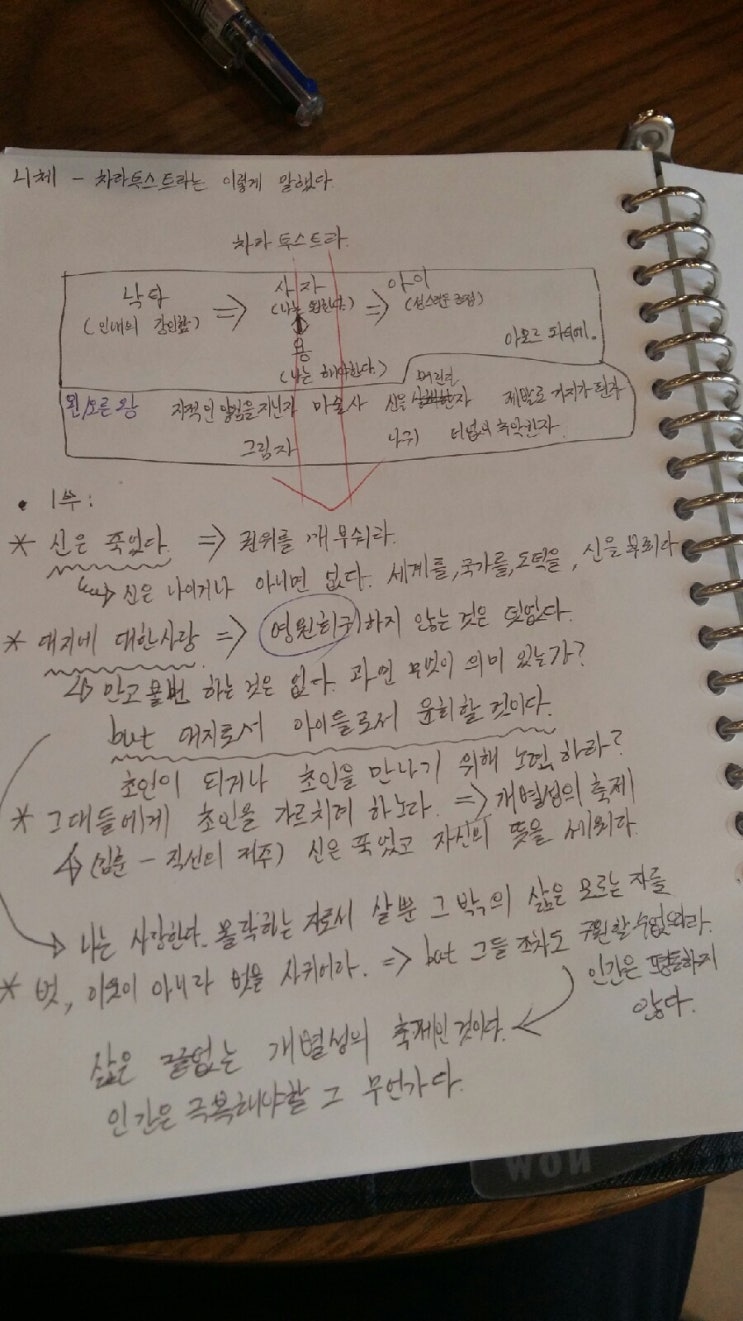 니체 - 차라투스트라는 이렇게 말했다
차라투스트라.
낙타 ⇒ 사자 ⇒ 아이
(인내의 강인함) (나는 원한다.) (성스러운 긍정)
용
(나는 해야한다.)
아모르 파티에.
왼/오른 왕 지적인 양심을 지닌자 마술사 신을 버린자 제발로 거지가 된자
그림자 나귀 더없이 추악한자
• 1부:
* 신은 죽었다. ⇒ 권위를 깨부숴라.
신은 나이거나 아니면 없다. 세계를, 국가를, 도덕을, 신을 부숴라
* 대지에 대한사랑 ⇒ 영원회귀하지 않는 것은 덧없다.
만고불변 하는 것은 없다. 과연 무엇이 의미 있는가?
but 대지로서 아이들로서 윤회할 것이다.
초인이 되거나 초인을 만나기 위해 노력하라?
* 그대들에게 초인을 가르치려 하노라. ⇒ 개별성의 축제
신은 죽었고 자신의 뜻을 세워라.
나는 사랑한다. 몰락하는 자로서 살뿐 그 밖의 삶은 모르는 자를
* 벗, 이웃이 아니라 벗을 사귀어라. ⇒ but 그들 조차도 구원할 수 없으리라.
인간은 평등하지
않다.
삶은 끝없는 개별성의 축제인 것이다.
인간은 극복해야할 그 무언가다.
WON